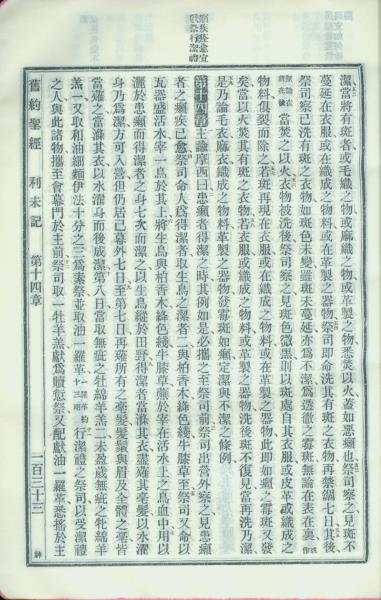 癩疾痊愈宜
獻祭行潔禮
潔當將有斑者或毛織之物或麻織之物或革製之物悉焚以火蓋如惡癩也祭司察之見斑不
蔓延在衣服或在織成之物料或在革製之器物祭司即命洗其有斑之衣物再禁錮七日其後
祭司察已洗有斑之衣物如斑色未變雖斑未蔓延亦爲不潔爲透徹之霉斑無論在表在裏或作
無論在前在後當焚之以火衣物被洗後祭司察之見斑色微黑則以斑處自其衣服或皮革或織成之
物料俱裂而除之若斑再現在衣服或在織成之物料或在革製之器物此即如癩之霉斑又發
矣當以火焚其有斑之衣物若衣服或織成之物料或革製之器物洗後斑不復見當再洗乃潔
是乃論毛衣麻衣織成之物料革製之器物發霉斑如癩定潔與不潔之條例
第十四章 主諭摩西曰患癩者得潔之時其例如是必攜之至祭司前祭司出營外察之見患癩
者之癩疾已愈祭司命人爲得潔者取生鳥之潔者二與柏香木絳色綫牛膝草至祭司又命以
瓦器盛活水宰一鳥於其上將生鳥與柏香木絳色綫牛膝草蘸於宰在活水上之鳥血中用以
灑於患癩而得潔者之身七次而潔之以生鳥縱於田野得潔者當滌其衣盡薙其毫髮以水濯
身乃爲潔方可入營但仍居己幕外七日至第七日再薙所有之毫髮鬚與眉及全體之毫皆
當薙之當滌其衣以水濯身而後成潔第八日當取無疵之牡綿羔二未盈歲無疵之牝綿羊
羔一又取和油細麵伊法十分之三爲素祭並取油一羅革羅革約十三兩行潔禮之祭司以受潔禮
之人與此諸物攜至會幕門於主前祭司取一牡羊羔獻爲贖愆祭又配獻油一羅革悉搖於主
舊約聖經 利未記 第十四章 一百三十三